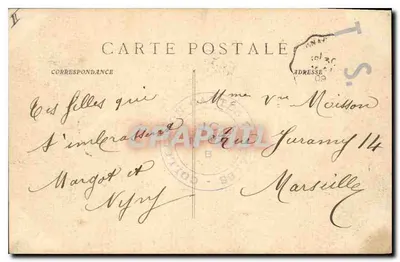 II
T S.
CARTE POSTALE
CORRESPONDANCE
ADRESSE
Tes filles qui
t'embrassent
Margot et
Mme Vve Moisson
Rue Juramy 14
Marseille
CPAPHIL